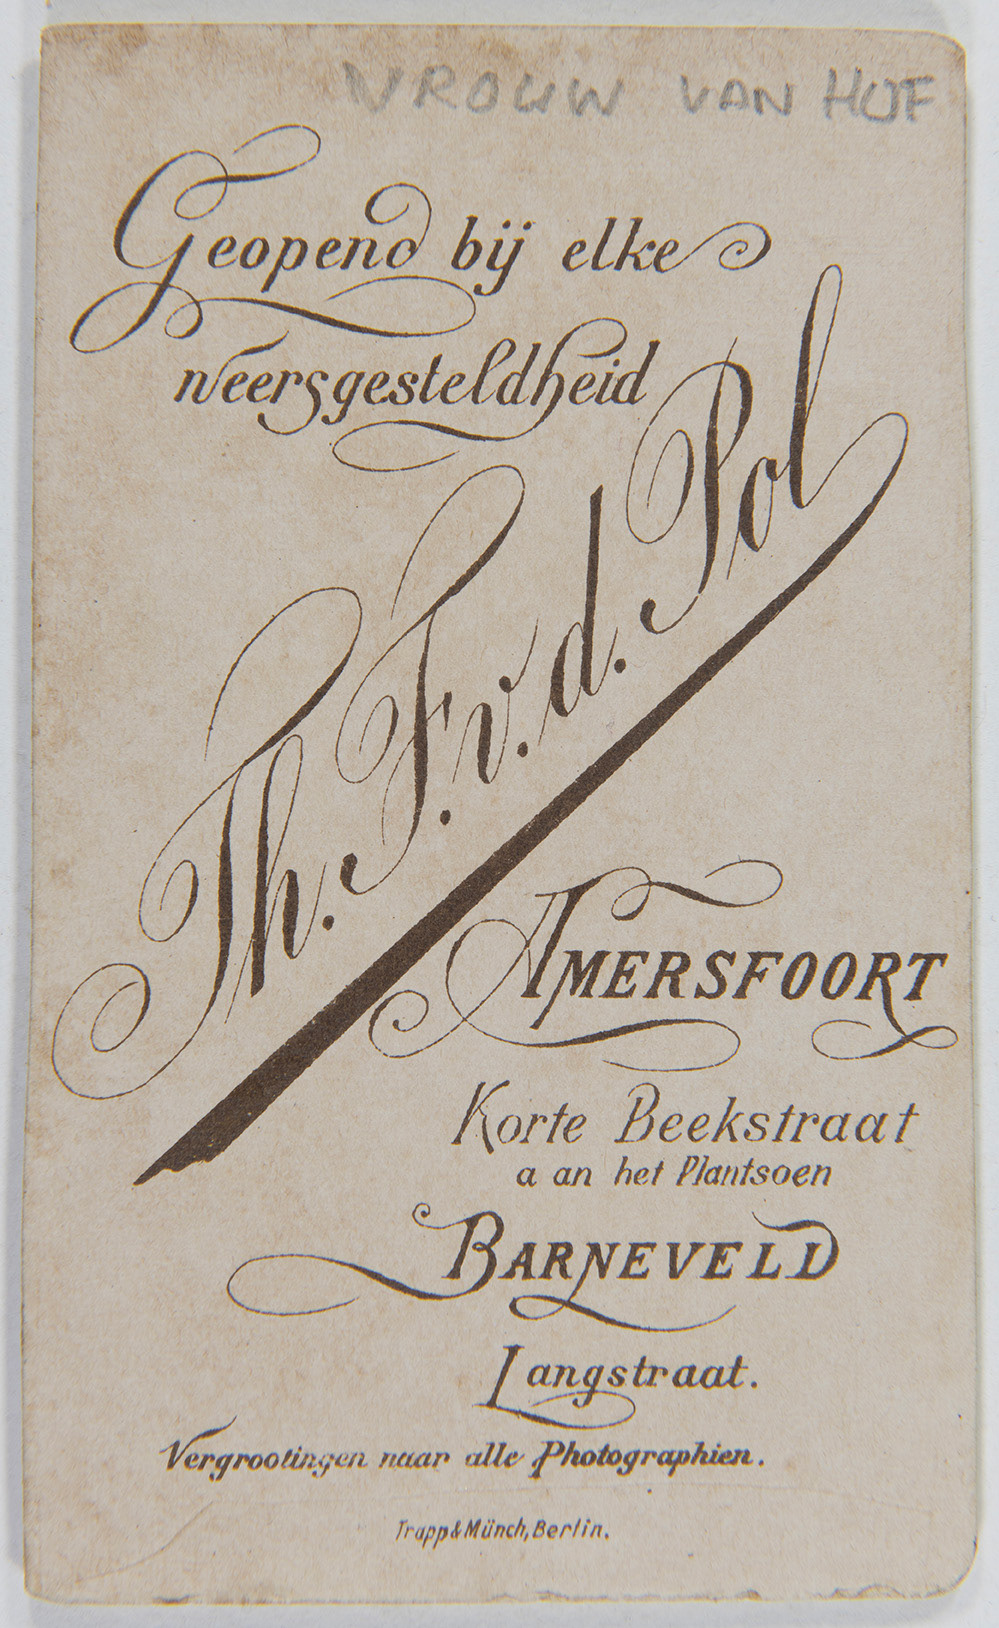 VROUW VAN HOF
Geopend bij elke
weersgesteldheid
Th. F. v. d. Pol
AMERSFOORT
Korte Beekstraat
a an het Plantsoen
BARNEVELD
Langstraat.
Vergrootingen naar alle Photographien.
Trapp & Münch, Berlin.